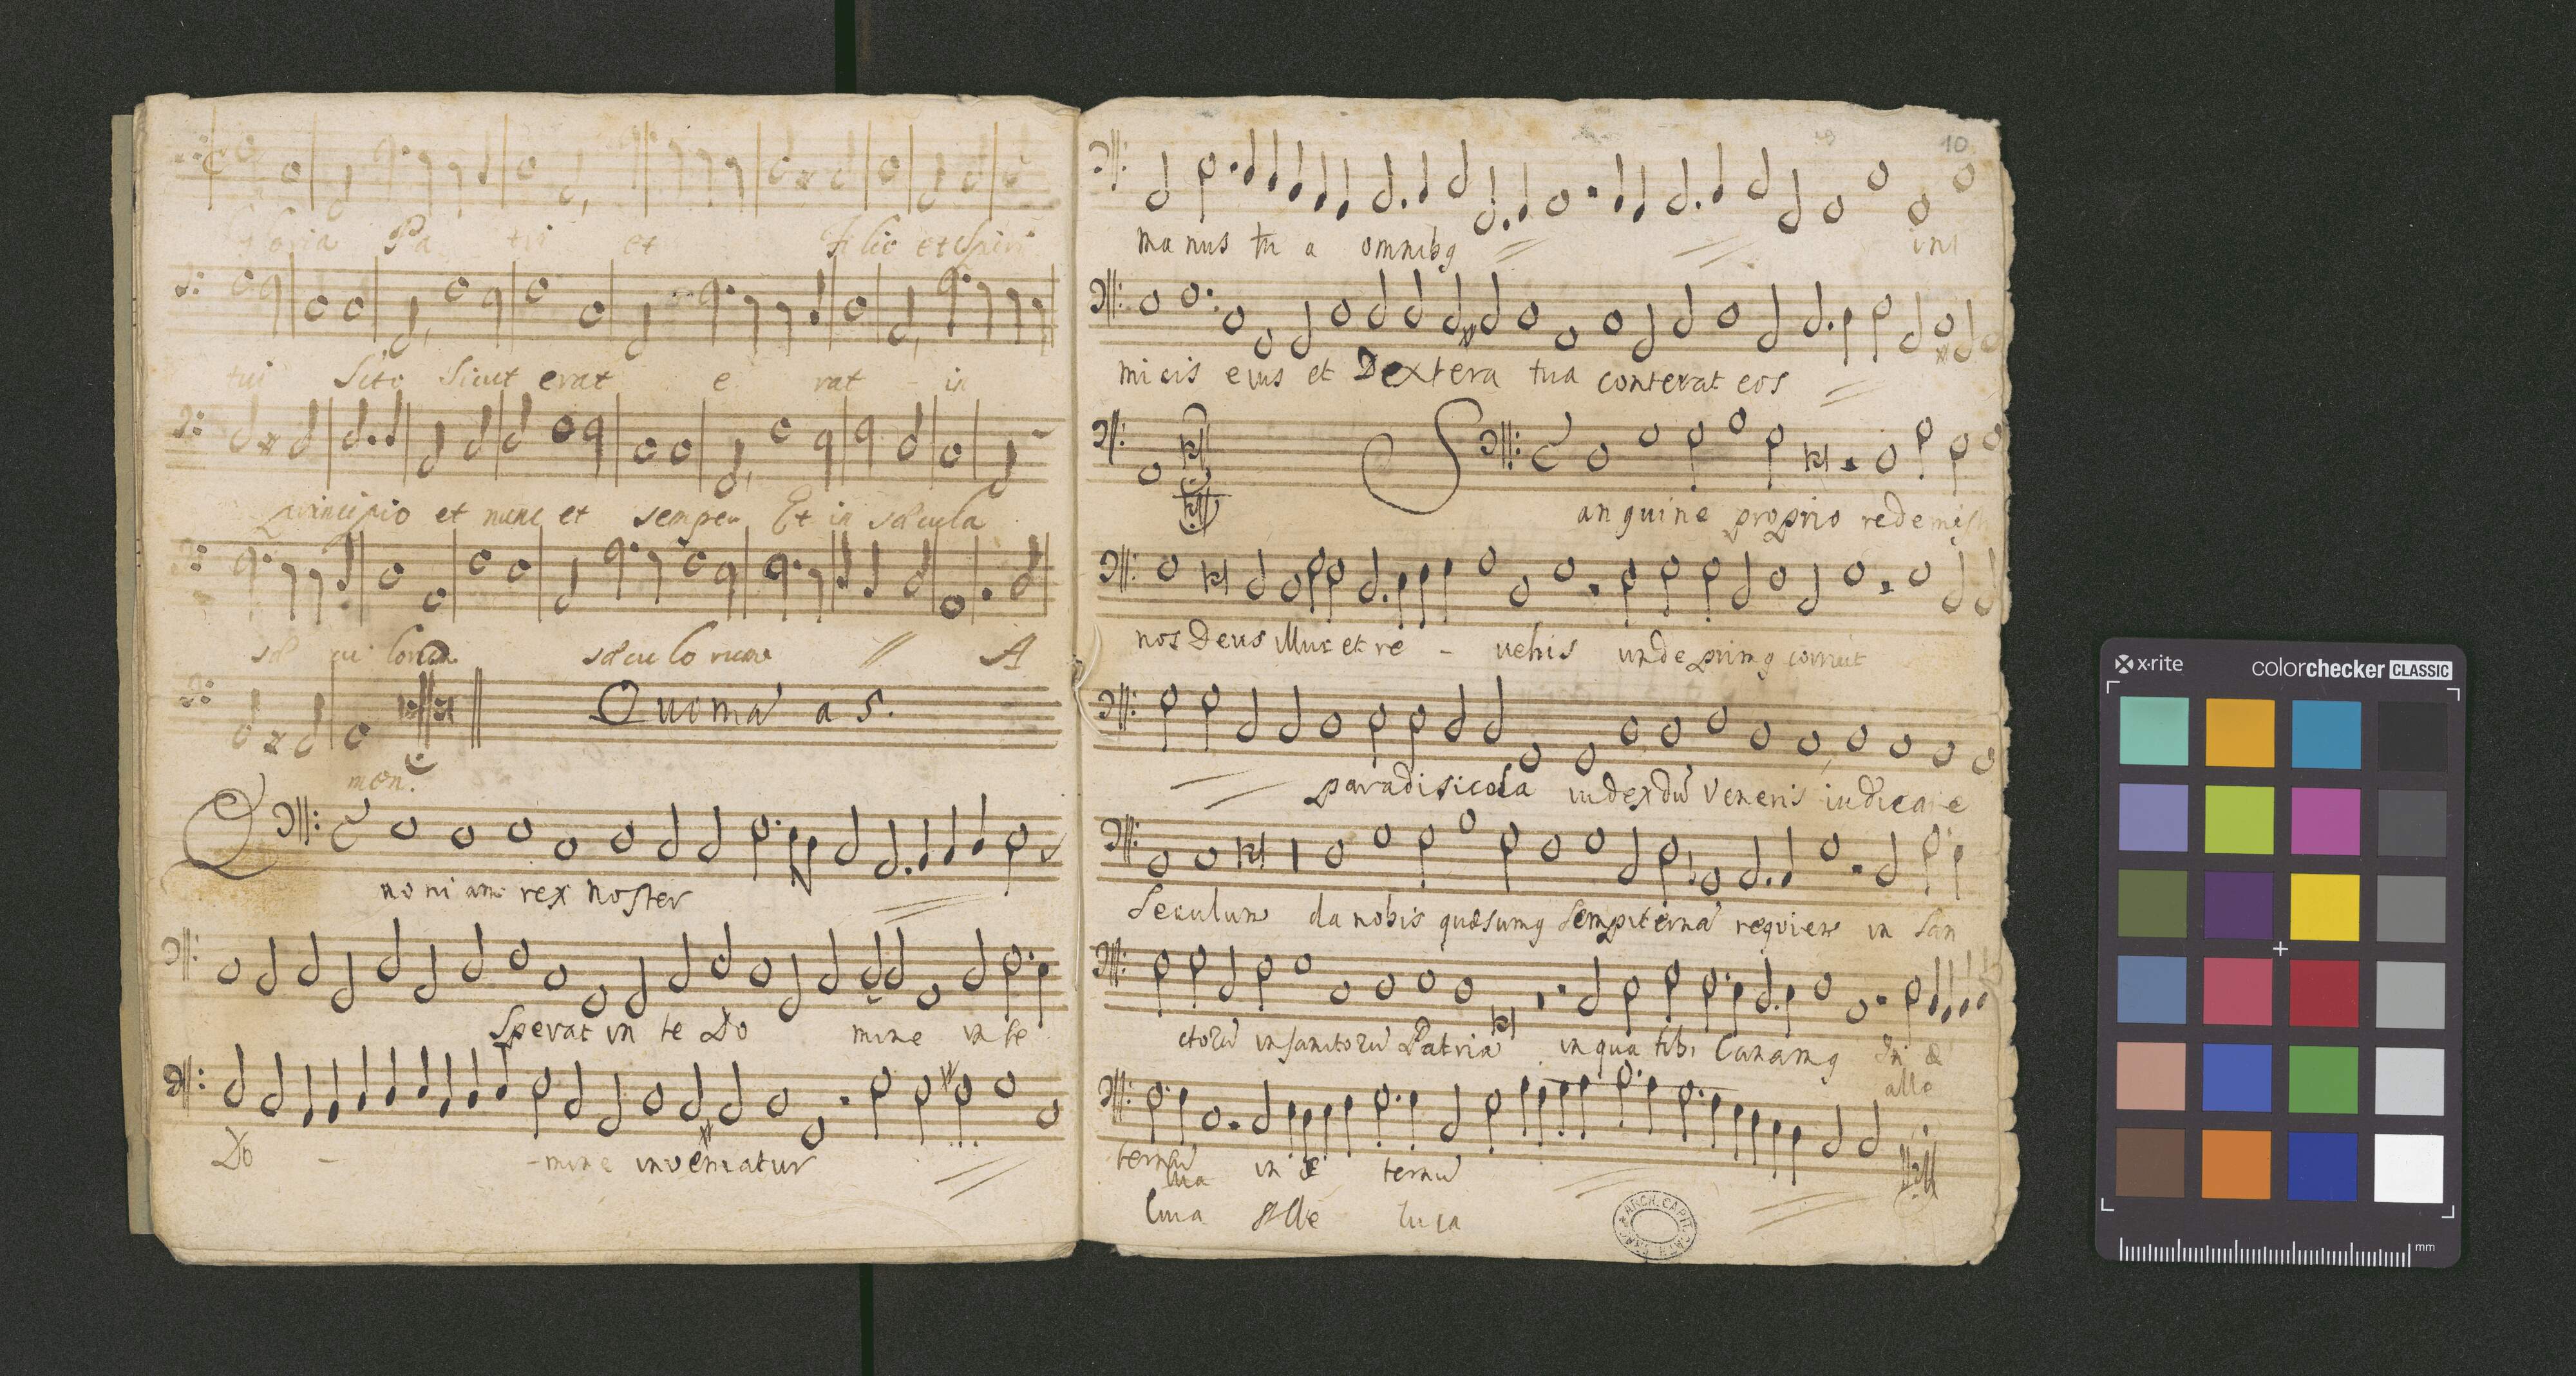 Gloria Pa tri et filio et Spiri
tui Sito Sicut erat e rat in
principio et nunc et semper Et in sæcula
sæ cu lorum sæculo rum A
Quoniã a 5.
men.
Quo ni am rex noster
Sperat in te Do mine in te
Do - - mine inveniatur
10
ma nus tu a omnibq ini
micis eius et Dextera tua conterat eos
San guine proprio redemisti
nos Deus illuc et re - vehis unde primq corruit
paradisicola iudex dũ Veneris iudicare
Seculum da nobis quæsumq sempiternã requiem in San
ctorũ in sanctorũ Patria in qua tibi Canamq In æ
alle
ternũ in æ ternũ
luia
luia Alle luia
ARCH. CAPIT.
x·rite
colorchecker CLASSIC
mm